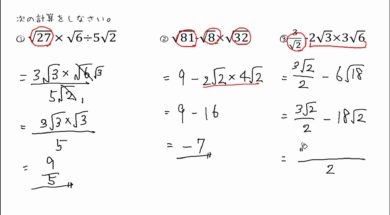 次の計算をしなさい。
① √27 × √6 ÷ 5√2
= 3√3 × √6 √3 / 5√2 1
= 3√3 × √3 / 5
= 9/5
② √81 - √8 × √32
= 9 - 2√2 × 4√2
= 9 - 16
= -7
③ 3/√2 - 2√3 × 3√6
= 3√2/2 - 6√18
= 3√2/2 - 18√2
= /2